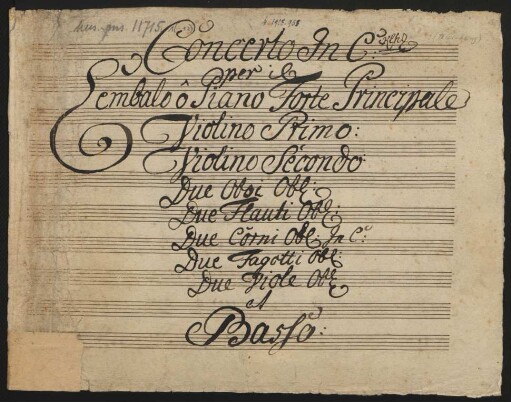 Mus. ms. 11715
Concerto In C.
per il
Cembalo ô Piano Forte Principale
Violino Primo:
Violino Secondo:
Due Oboi Obl:
Due Flauti Obl:
Due Corni Obl: In C.
Due Fagotti Obl:
Due Viole Obl:
et
Basso: